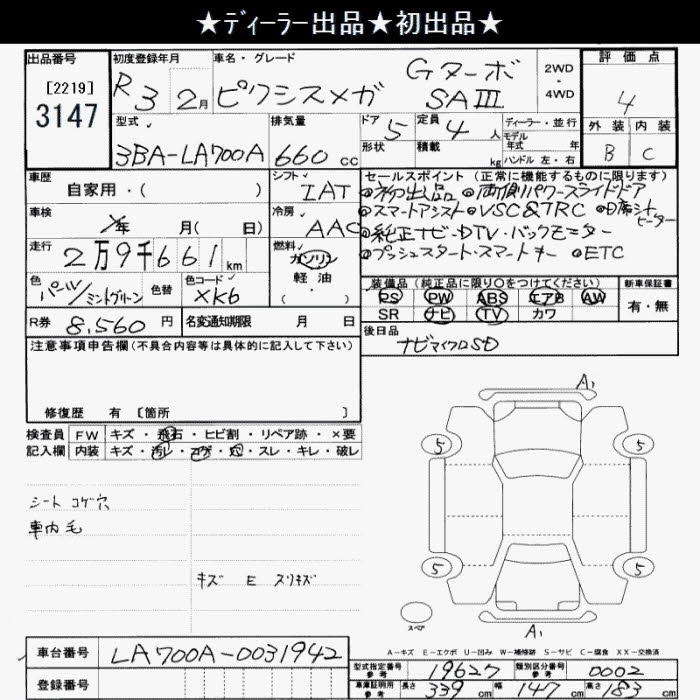 ★ディーラー出品★初出品★
出品番号
[2219]
3147
初度登録年月
R3 2月
車名・グレード
ピクシスメガ Gターボ SAIII
2WD
・
4WD
評価点
4
外装 内装
B C
型式
3BA-LA700A
排気量
660 cc
ドア 5
形状
定員 4 人
積載 kg
ディーラー・並行
モデル
年式 年
ハンドル 左・右
車歴
自家用・( )
シフト
IAT
セールスポイント (正常に機能するものに限ります)
◎初出品 ◎両側パワースライドドア
◎スマートアシスト◎VSC&TRC ◎D席シートヒーター
◎純正ナビ・DTV・バックモニター
◎プッシュスタート・スマートキー ◎ETC
車検
年 月( 日)
冷房
AAC
走行
2万9千661 km
燃料
ガソリン
軽・油
・( )
色
パール/ミントグリーン
色替
色コード
XK6
R券 8,560 円
名変通知期限 月 日
装備品 (純正品に限り○をつけてください)
PS PW ABS エアB AW
SR ナビ TV カワ
新車保証書
有・無
後日品
ナビマイクロSD
注意事項申告欄(不具合内容等は具体的に記入して下さい)
修復歴 有 [箇所 ]
検査員 FW キズ・飛石・ヒビ割・リペア跡・×要
記入欄 内装 キズ・汚レ・コゲ・穴・スレ・キレ・破レ
シート コゲ穴
車内毛
キズ E スリキズ
A1
5 5
5 5
スペア
A1
A-キズ E-エクボ U-凹み W-補修跡 S-サビ C-腐食 XX-交換済
車台番号 LA700A-0031942
登録番号
型式指定番号 参考 19627
類別区分番号 参考 0002
車庫証明用 参考 長さ 339 cm 幅 147 cm 高さ 183 cm